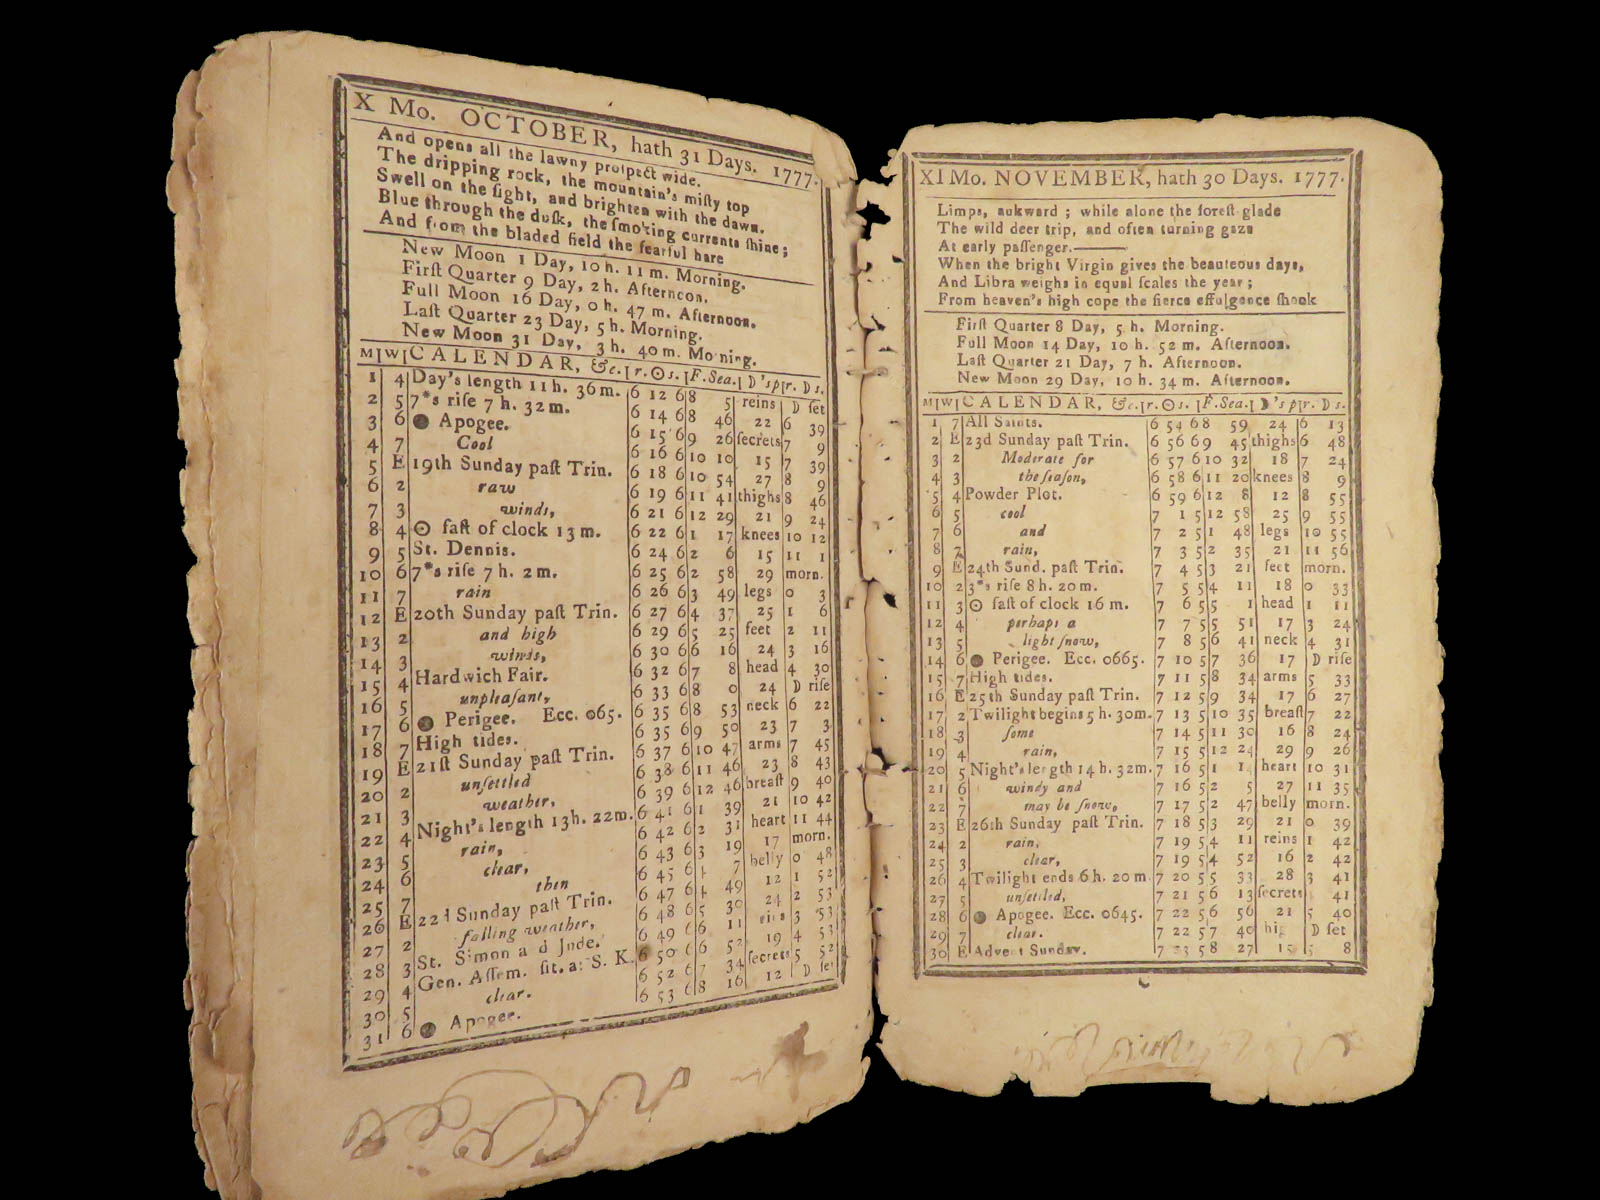 X Mo. OCTOBER, hath 31 Days. 1777.
And opens all the lawny proſpect wide.
The dripping rock, the mountain's miſty top
Swell on the ſight, and brighten with the dawn.
Blue through the duſk, the ſmoking currents ſhine;
And from the bladed field the fearful hare
New Moon 1 Day, 10 h. 11 m. Morning.
Firſt Quarter 9 Day, 2 h. Afternoon.
Full Moon 16 Day, 0 h. 47 m. Afternoon.
Laſt Quarter 23 Day, 5 h. Morning.
New Moon 31 Day, 3 h. 40 m. Morning.
M|W|CALENDAR, &c.|r.☉s.|F.Sea.|☽'s p|r. ☽ s.
1 4 Day's length 11 h. 36 m. 6 12 6 8 5 reins ☽ ſet
2 5 7*s riſe 7 h. 32 m. 6 14 6 8 46 22 6 39
3 6 ● Apogee. 6 15 6 9 26 ſecrets 7 9
4 7 Cool 6 16 6 10 10 15 7 39
5 E 19th Sunday paſt Trin. 6 18 6 10 54 27 8 9
6 2 raw 6 19 6 11 41 thighs 8 46
7 3 winds, 6 21 6 12 29 21 9 24
8 4 ☉ faſt of clock 13 m. 6 22 6 1 17 knees 10 12
9 5 St. Dennis. 6 24 6 2 6 15 11 1
10 6 7*s riſe 7 h. 2 m. 6 25 6 2 58 29 morn.
11 7 rain 6 26 6 3 49 legs 0 3
12 E 20th Sunday paſt Trin. 6 27 6 4 37 25 1 6
13 2 and high 6 29 6 5 25 feet 2 11
14 3 winds, 6 30 6 6 16 24 3 16
15 4 Hardwich Fair. 6 32 6 7 8 head 4 30
16 5 unpleaſant, 6 33 6 8 0 24 ☽ riſe
17 6 ● Perigee. Ecc. 065. 6 35 6 8 53 neck 6 22
18 7 High tides. 6 35 6 9 50 23 7 3
19 E 21ſt Sunday paſt Trin. 6 37 6 10 47 arms 7 45
20 2 unſettled 6 38 6 11 46 23 8 43
21 3 weather, 6 39 6 12 46 breaſt 9 40
22 4 Night's length 13h. 22m. 6 41 6 1 39 21 10 42
23 5 rain, 6 42 6 2 31 heart 11 44
24 6 clear, 6 43 6 3 19 17 morn.
25 7 then 6 45 6 4 7 belly 0 48
26 E 22d Sunday paſt Trin. 6 47 6 4 49 12 1 52
27 2 falling weather, 6 48 6 5 30 24 2 53
28 3 St. Simon a d Jude. 6 49 6 6 11 3 53
29 4 Gen. Aſſem. ſit. at S. K. 6 50 6 6 52 19 4 53
30 5 clear. 6 52 6 7 34 ſecrets 5 52
31 6 ● Apogee. 6 53 6 8 16 12 ☽ ſet
XI Mo. NOVEMBER, hath 30 Days. 1777.
Limps, aukward; while alone the foreſt glade
The wild deer trip, and often turning gaze
At early paſſenger.———
When the bright Virgin gives the beauteous days,
And Libra weighs in equal ſcales the year;
From heaven's high cope the fierce effulgence ſhook
Firſt Quarter 8 Day, 5 h. Morning.
Full Moon 14 Day, 10 h. 52 m. Afternoon.
Laſt Quarter 21 Day, 7 h. Afternoon.
New Moon 29 Day, 10 h. 34 m. Afternoon.
M|W|CALENDAR, &c.|r.☉s.|F.Sea.|☽'s p|r. ☽ s.
1 7 All Saints. 6 54 6 8 59 24 6 13
2 E 23d Sunday paſt Trin. 6 56 6 9 45 thighs 6 48
3 2 Moderate for 6 57 6 10 32 18 7 24
4 3 the ſeaſon, 6 58 6 11 20 knees 8 9
5 4 Powder Plot. 6 59 6 12 8 12 8 55
6 5 cool 7 1 5 12 58 25 9 55
7 6 and 7 2 5 1 48 legs 10 55
8 7 rain, 7 3 5 2 35 21 11 56
9 E 24th Sund. paſt Trin. 7 4 5 3 21 feet morn.
10 2 3*s riſe 8 h. 20 m. 7 5 5 4 11 18 0 33
11 3 ☉ faſt of clock 16 m. 7 6 5 5 1 head 1 11
12 4 perhaps a 7 7 5 5 51 17 3 24
13 5 light ſnow, 7 8 5 6 41 neck 4 31
14 6 ● Perigee. Ecc. 0665. 7 10 5 7 36 17 ☽ riſe
15 7 High tides. 7 11 5 8 34 arms 5 33
16 E 25th Sunday paſt Trin. 7 12 5 9 34 17 6 27
17 2 Twilight begins 5 h. 30m. 7 13 5 10 35 breaſt 7 22
18 3 ſome 7 14 5 11 30 16 8 24
19 4 rain, 7 15 5 12 24 29 9 26
20 5 Night's length 14 h. 32m. 7 16 5 1 heart 10 31
21 6 windy and 7 16 5 2 5 27 11 35
22 7 may be ſnow, 7 17 5 2 47 belly morn.
23 E 26th Sunday paſt Trin. 7 18 5 3 29 21 0 39
24 2 rain, 7 19 5 4 11 reins 1 42
25 3 clear, 7 19 5 4 52 16 2 42
26 4 Twilight ends 6 h. 20 m 7 20 5 5 33 28 3 41
27 5 unſettled, 7 21 5 6 13 ſecrets 41
28 6 ● Apogee. Ecc. 0645. 7 22 5 6 56 21 5 40
29 7 clear. 7 22 5 7 40 ☽ ſet
30 E Advent Sunday. 7 23 5 8 27 5 8